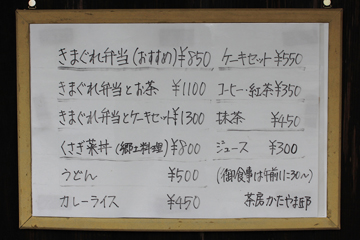 きまぐれ弁当(おすすめ)¥850
きまぐれ弁当とお茶 ¥1100
きまぐれ弁当とケーキセット¥1300
くさぎ菜丼(郷土料理)¥800
うどん ¥500
カレーライス ¥450
ケーキセット¥550
コーヒー・紅茶¥350
抹茶 ¥450
ジュース ¥300
(御食事は午前11:30〜)
茶房かたやま邸